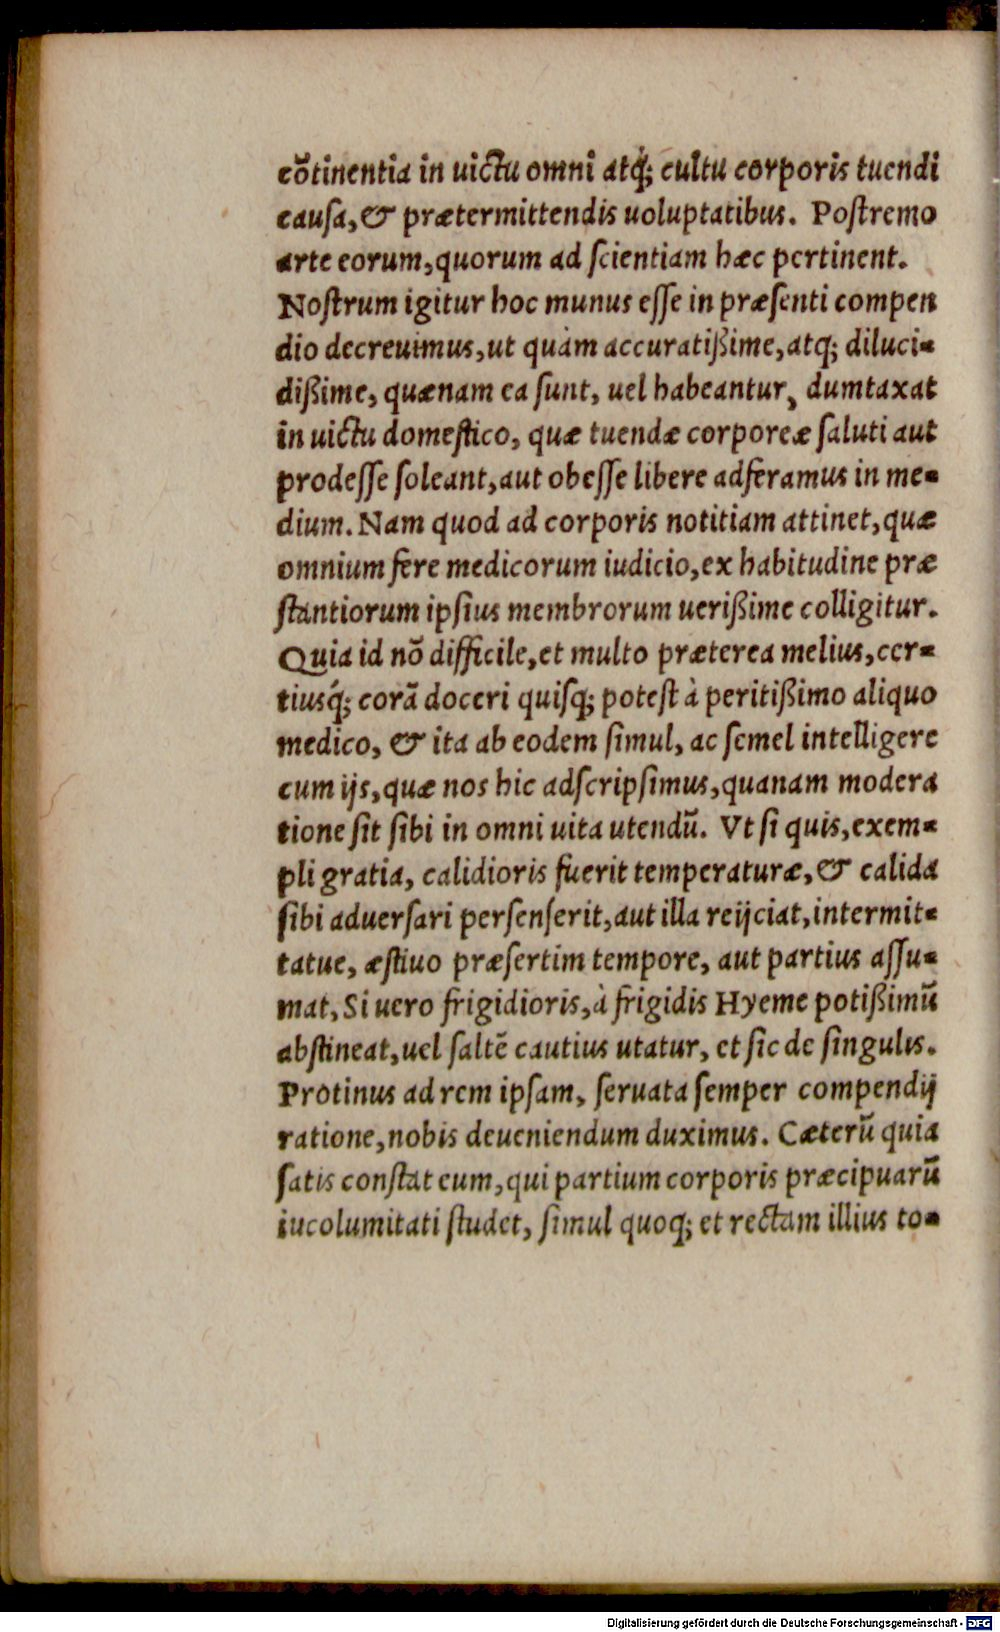 cõtinentia in uictu omni atq́; cultu corporis tuendi
cauſa, & prætermittendis uoluptatibus. Poſtremo
arte eorum, quorum ad ſcientiam hæc pertinent.
Noſtrum igitur hoc munus eſſe in præſenti compen
dio decreuimus, ut quàm accuratißime, atq; diluci-
dißime, quænam ea ſunt, uel habeantur, dumtaxat
in uictu domeſtico, quæ tuendæ corporeæ ſaluti aut
prodeſſe ſoleant, aut obeſſe libere adferamus in me-
dium. Nam quod ad corporis notitiam attinet, quæ
omnium fere medicorum iudicio, ex habitudine præ
ſtantiorum ipſius membrorum uerißime colligitur.
Quia id nõ difficile, et multo præterea melius, cer-
tiusq́; corã doceri quiſq; poteſt à peritißimo aliquo
medico, & ita ab eodem ſimul, ac ſemel intelligere
cum ijs, quæ nos hic adſcripſimus, quanam modera
tione ſit ſibi in omni uita utendũ. Vt ſi quis, exem-
pli gratia, calidioris fuerit temperaturæ, & calida
ſibi aduerſari perſenſerit, aut illa reijciat, intermit-
tatue, æſtiuo præſertim tempore, aut partius aſſu-
mat, Si uero frigidioris, à frigidis Hyeme potißimũ
abſtineat, uel ſaltẽ cautius utatur, et ſic de ſingulis.
Protinus ad rem ipſam, ſeruata ſemper compendij
ratione, nobis deueniendum duximus. Cæterũ quia
ſatis conſtat eum, qui partium corporis præcipuarũ
iucolumitati ſtudet, ſimul quoq; et rectam illius to-
Digitalisierung gefördert durch die Deutsche Forschungsgemeinschaft - DFG